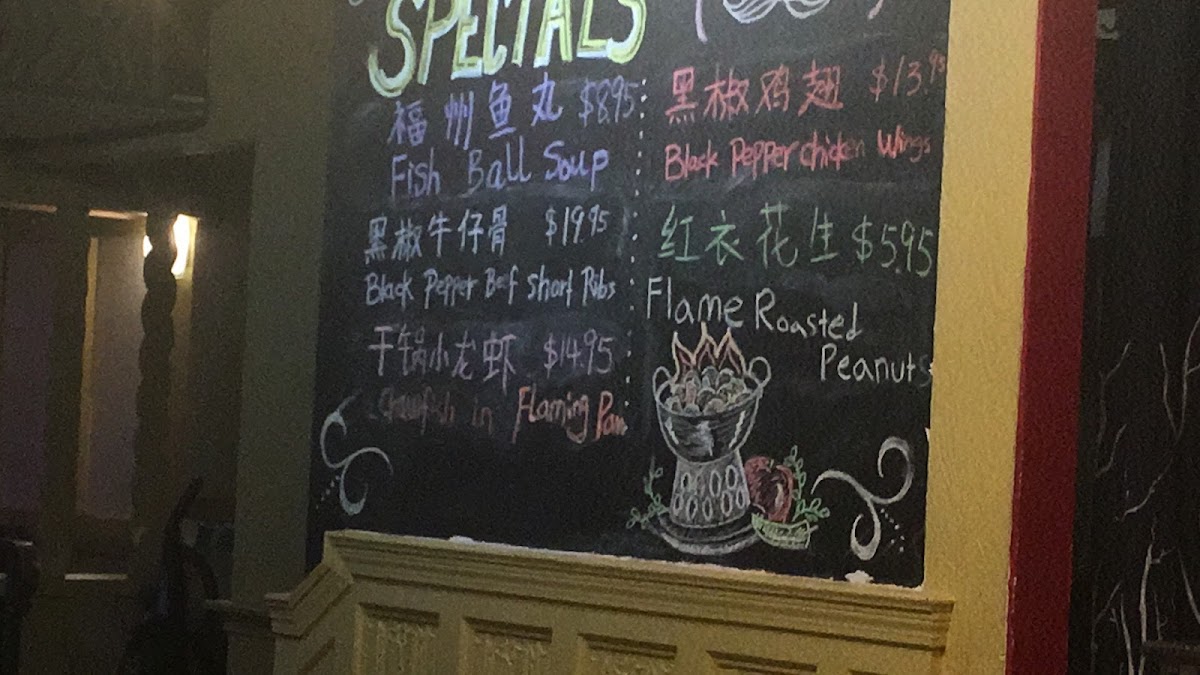 SPECIALS
福州鱼丸 $8.95
Fish Ball Soup
黑椒牛仔骨 $19.95
Black Pepper Bef Short Ribs
干锅小龙虾 $14.95
in Flaming Pan
黑椒鸡翅 $13.95
Black Pepper chicken Wings
红衣花生 $5.95
Flame Roasted
Peanuts